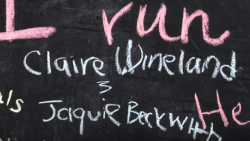 I run
Claire Wineland
3
Jaquie Beckwith
He